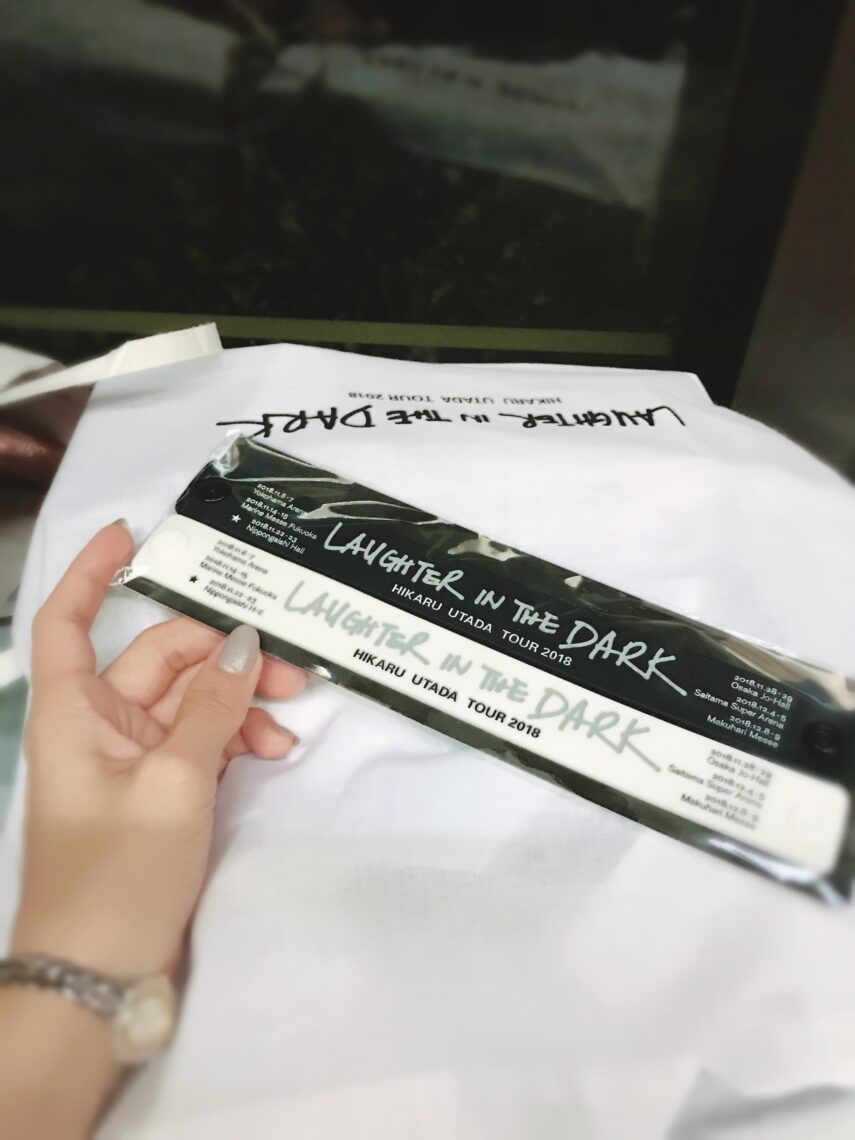 LAUGHTER IN THE DARK
HIKARU UTADA TOUR 2018
2018.11.6-7
Yokohama Arena
2018.11.14-15
Marine Messe Fukuoka
★ 2018.11.22-23
Nippongaishi Hall
LAUGHTER IN THE DARK
HIKARU UTADA TOUR 2018
2018.11.28-29
Osaka Jo-Hall
2018.12.4-5
Saitama Super Arena
2018.12.8-9
Makuhari Messe
2018.11.6-7
Yokohama Arena
2018.11.14-15
Marine Messe Fukuoka
★ 2018.11.22-23
Nippongaishi Hall
LAUGHTER IN THE DARK
HIKARU UTADA TOUR 2018
2018.11.28-29
Osaka Jo-Hall
2018.12.4-5
Saitama Super Arena
2018.12.8-9
Makuhari Messe